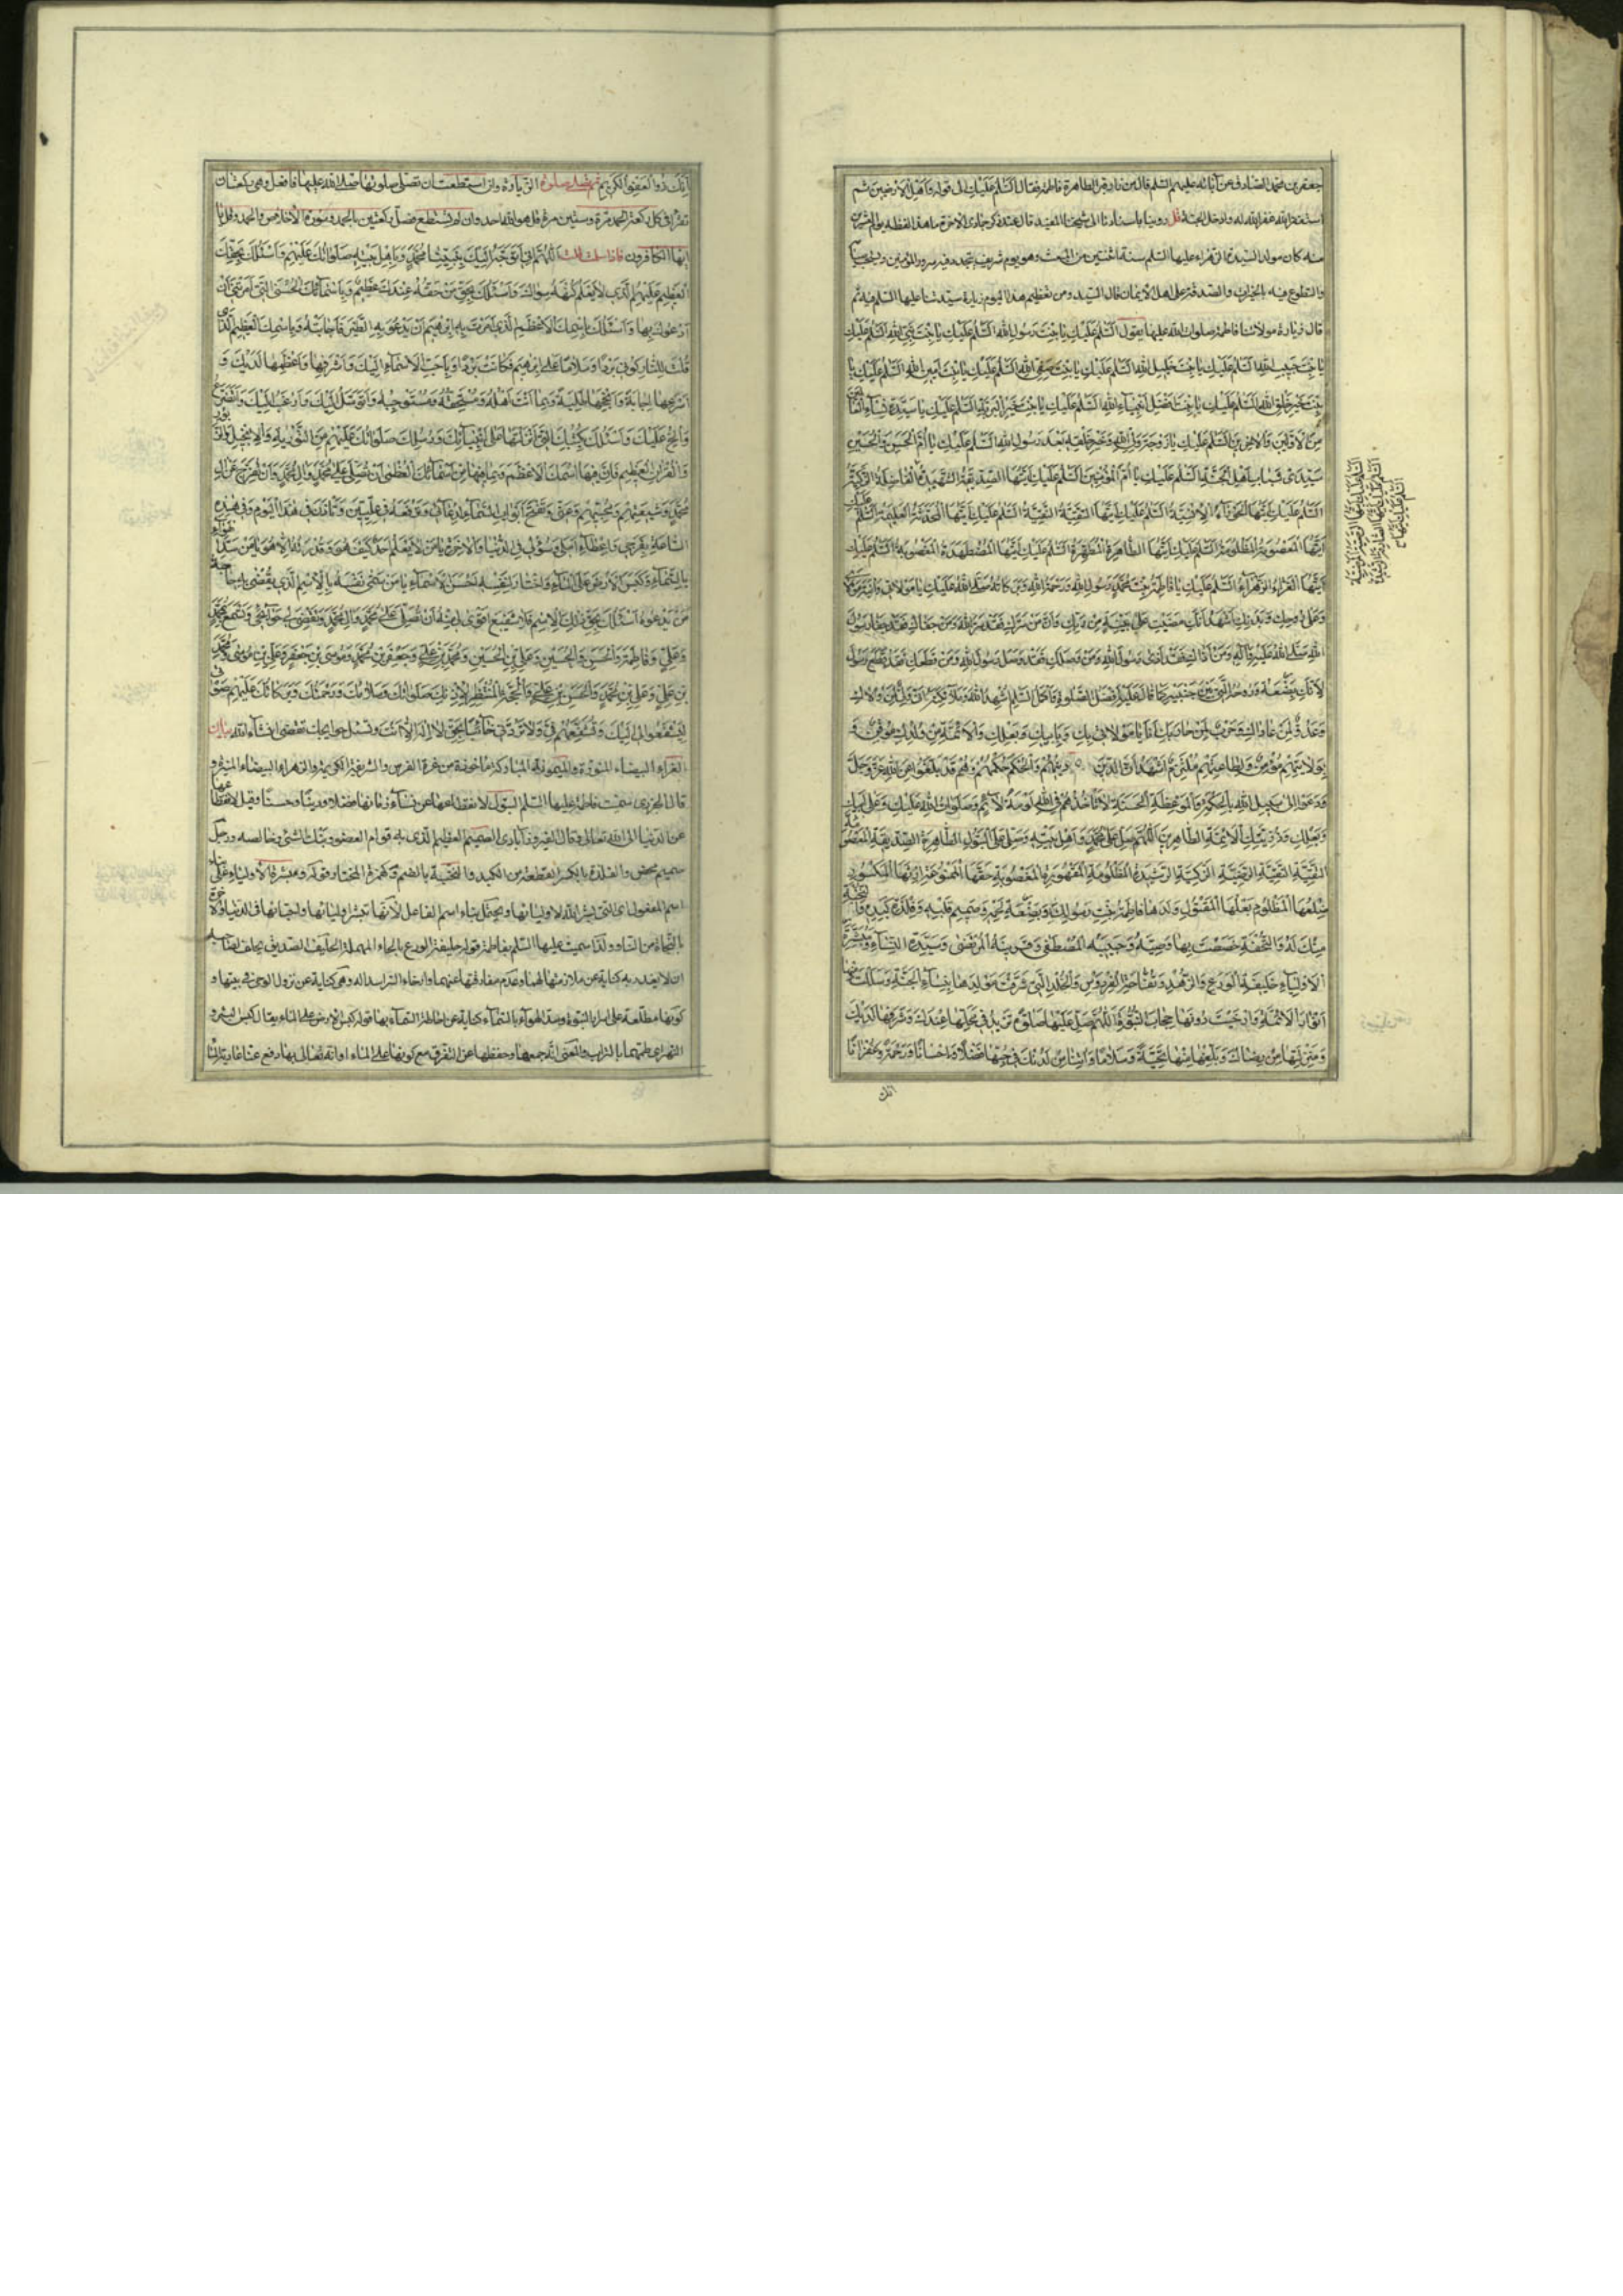 جعفر بن محمد الصادق عن آبائه عليهم السلم قال من زار قبر الطاهرة فاطمة فقال السَّلم عَلَيْكِ الى قوله وَاَهْلِ الْاَرَضين ثم
استغفر الله غفر الله له وادخله الجنة قل روينا باسنادنا الى شيخنا المفيد قال عند ذكر جمادى الاخرة ما هذا لفظه يوم العشرين
منه كان مولد السيدة الزهراء عليها السلم سنة اثنتين من المبعث وهو يوم شريف يتجدد فيه سرور المؤمنين ويستحب صيامه
والتطوع فيه بالخيرات والصدقة على اهل الايمان قال السيد ومن تعظيم هذا اليوم زيارة سيدتنا عليها السلم فيه ثم
قال زيارة مولاتنا فاطمة صلوات الله عليها يقول السَّلم عَلَيْكِ يا بِنْتَ رَسُولِ اللهِ السَّلم عَلَيْكِ يا بِنْتَ نَبِيِّ اللهِ السَّلم عَلَيْكِ
يا بِنْتَ حَبيبِ اللهِ السَّلم عَلَيْكِ يا بِنْتَ خَليلِ اللهِ السَّلم عَلَيْكِ يا بِنْتَ صَفِيِّ اللهِ السَّلم عَلَيْكِ يا بِنْتَ اَمينِ اللهِ السَّلم عَلَيْكِ يا
بِنْتَ خَيْرِ خَلْقِ اللهِ السَّلم عَلَيْكِ يا بِنْتَ اَفْضَلِ اَنْبِياءِ اللهِ السَّلم عَلَيْكِ يا بِنْتَ خَيْرِ الْبَرِيَّةِ السَّلم عَلَيْكِ يا سَيِّدَةَ نِساءِ الْعالَمين
مِنَ الْاَوَّلينَ وَالْاخِرينَ السَّلم عَلَيْكِ يا زَوْجَةَ وَلِيِّ اللهِ وَخَيْرِ خَلْقِهِ بَعْدَ رَسُولِ اللهِ السَّلم عَلَيْكِ يا اُمَّ الْحَسَنِ وَالْحُسَيْنِ
سَيِّدَيْ شَبابِ اَهْلِ الْجَنَّةِ السَّلم عَلَيْكِ يا اُمَّ الْمُؤْمِنينَ السَّلم عَلَيْكِ اَيَّتُهَا الصِّدّيقَةُ الشَّهيدَةُ الْفاضِلَةُ الزَّكِيَّةُ
السَّلم عَلَيْكِ اَيَّتُهَا الْحَوْراءُ الْاِنْسِيَّةُ السَّلم عَلَيْكِ اَيَّتُهَا التَّقِيَّةُ النَّقِيَّةُ السَّلم عَلَيْكِ اَيَّتُهَا الْمُحَدَّثَةُ الْعَليمَةُ السَّلم عَلَيْكِ
اَيَّتُهَا الْمَعْصُومَةُ الْمَظْلُومَةُ السَّلم عَلَيْكِ اَيَّتُهَا الطّاهِرَةُ الْمُطَهَّرَةُ السَّلم عَلَيْكِ اَيَّتُهَا الْمُضْطَهَدَةُ الْمَغْصُوبَةُ السَّلم عَلَيْكِ
اَيَّتُهَا الْغَرّاءُ الزَّهْراءُ السَّلم عَلَيْكِ يا فاطِمَةُ بِنْتَ مُحَمَّدٍ رَسُولِ اللهِ وَرَحْمَةُ اللهِ وَبَرَكاتُهُ صَلَّى اللهُ عَلَيْكِ يا مَوْلاتي وَابْنَةَ مَوْلايَ
وَعَلى رُوحِكِ وَبَدَنِكِ اَشْهَدُ اَنَّكِ مَضَيْتِ عَلى بَيِّنَةٍ مِنْ رَبِّكِ وَاَنَّ مَنْ سَرَّكِ فَقَدْ سَرَّ رَسُولَ اللهِ وَمَنْ جَفاكِ فَقَدْ جَفا رَسُولَ
اللهِ صَلَّى اللهُ عَلَيْهِ وَآلِهِ وَمَنْ آذاكِ فَقَدْ آذى رَسُولَ اللهِ وَمَنْ وَصَلَكِ فَقَدْ وَصَلَ رَسُولَ اللهِ وَمَنْ قَطَعَكِ فَقَدْ قَطَعَ رَسُولَ
لِاَنَّكِ بَضْعَةٌ مِنْهُ وَرُوحُهُ الَّتي بَيْنَ جَنْبَيْهِ كَما قالَ عَلَيْهِ اَفْضَلُ الصَّلوةِ وَاَكْمَلُ السَّلم اُشْهِدُ اللهَ وَمَلائِكَتَهُ اَنّي وَلِيٌّ لِمَنْ والاكِ
وَعَدُوٌّ لِمَنْ عاداكِ وَحَرْبٌ لِمَنْ حارَبَكِ اَنَا يا مَوْلاتي بِكِ وَبِاَبيكِ وَبَعْلِكِ وَالْاَئِمَّةِ مِنْ وُلْدِكِ مُوقِنٌ وَ
بِوِلايَتِهِمْ مُؤْمِنٌ وَبِطاعَتِهِمْ مُلْتَزِمٌ اَشْهَدُ اَنَّ الدّينَ دينُهُمْ وَالْحُكْمَ حُكْمُهُمْ وَهُمْ قَدْ بَلَّغُوا عَنِ اللهِ عَزَّ وَجَلَّ
وَدَعَوْا اِلى سَبيلِ اللهِ بِالْحِكْمَةِ وَالْمَوْعِظَةِ الْحَسَنَةِ لا تَأْخُذُهُمْ فِي اللهِ لَوْمَةُ لائِمٍ وَصَلَواتُ اللهِ عَلَيْكِ وَعَلى اَبيكِ
وَبَعْلِكِ وَذُرِّيَّتِكِ الْاَئِمَّةِ الطّاهِرينَ اَللّهُمَّ صَلِّ عَلى مُحَمَّدٍ وَاَهْلِ بَيْتِهِ وَصَلِّ عَلَى الْبَتُولِ الطّاهِرَةِ الصِّدّيقَةِ الْمَعْصُومَةِ
التَّقِيَّةِ النَّقِيَّةِ الرَّضِيَّةِ الزَّكِيَّةِ الرَّشيدَةِ الْمَظْلُومَةِ الْمَقْهُورَةِ الْمَغْصُوبَةِ حَقُّهَا الْمَمْنُوعَةِ اِرْثُهَا الْمَكْسُورَةِ
ضِلْعُهَا الْمَظْلُومِ بَعْلُهَا الْمَقْتُولِ وَلَدُها فاطِمَةَ بِنْتِ رَسُولِكَ وَبَضْعَةِ لَحْمِهِ وَصَميمِ قَلْبِهِ وَفِلْذَةِ كَبِدِهِ وَالنُّخْبَةِ
مِنْكَ لَهُ وَالتُّحْفَةِ خَصَصْتَ بِها وَصِيَّهُ وَحَبيبَةِ الْمُصْطَفى وَقَرينَةِ الْمُرْتَضى وَسَيِّدَةِ النِّساءِ وَمُبَشِّرَةِ
الْاَوْلِياءِ حَليفَةِ الْوَرَعِ وَالزُّهْدِ وَتُفّاحَةِ الْفِرْدَوْسِ وَالْخُلْدِ الَّتي شَرَّفْتَ مَوْلِدَها بِنِساءِ الْجَنَّةِ وَسَلَلْتَ مِنْها
اَنْوارَ الْاَئِمَّةِ وَاَرْخَيْتَ دُونَها حِجابَ النُّبُوَّةِ اَللّهُمَّ صَلِّ عَلَيْها صَلوةً تَزيدُ في مَحَلِّها عِنْدَكَ وَشَرَفِها لَدَيْكَ
وَمَنْزِلَتِها مِنْ رِضاكَ وَبَلِّغْها مِنّا تَحِيَّةً وَسَلاماً وَآتِنا مِنْ لَدُنْكَ في حُبِّها فَضْلاً وَاِحْساناً وَرَحْمَةً وَغُفْراناً
انك
اِنَّكَ ذُو الْعَفْوِ الْكَريمِ ثم تصلى صلوة الزيارة وان استطعت ان تصلى صلوتها صلى الله عليها فافعل وهى ركعتان
تقرأ فى كل ركعة الحمد مرة وستين مرة قل هو الله احد وان لم تستطع فصل ركعتين بالحمد وسورة الاخلاص والحمد وقل يا
ايها الكافرون فاذا سلمت قلت اَللّهُمَّ اِنّي اَتَوَجَّهُ اِلَيْكَ بِنَبِيِّنا مُحَمَّدٍ وَبِاَهْلِ بَيْتِهِ صَلَواتُكَ عَلَيْهِمْ وَاَسْئَلُكَ بِحَقِّكَ
الْعَظيمِ عَلَيْهِمُ الَّذي لا يَعْلَمُ كُنْهَهُ سِواكَ وَاَسْئَلُكَ بِحَقِّ مَنْ حَقُّهُ عِنْدَكَ عَظيمٌ وَبِاَسْمائِكَ الْحُسْنَى الَّتي اَمَرْتَني اَنْ
اَدْعُوَكَ بِها وَاَسْئَلُكَ بِاسْمِكَ الْاَعْظَمِ الَّذي اَمَرْتَ بِهِ اِبْرهيمَ اَنْ يَدْعُوَ بِهِ الطَّيْرَ فَاَجابَتْهُ وَبِاسْمِكَ الْعَظيمِ الَّذي
قُلْتَ لِلنّارِ كُوني بَرْداً وَسَلاماً عَلى اِبْرهيمَ فَكانَتْ بَرْداً وَبِاَحَبِّ الْاَسْماءِ اِلَيْكَ وَاَشْرَفِها وَاَعْظَمِها لَدَيْكَ وَ
اَسْرَعِها اِجابَةً وَاَنْجَحِها طَلِبَةً وَبِما اَنْتَ اَهْلُهُ وَمُسْتَحِقُّهُ وَمُسْتَوْجِبُهُ وَاَتَوَسَّلُ اِلَيْكَ وَاَرْغَبُ اِلَيْكَ وَاَتَضَرَّعُ
وَاُلِحُّ عَلَيْكَ وَاَسْئَلُكَ بِكُتُبِكَ الَّتي اَنْزَلْتَها عَلى اَنْبِيائِكَ وَرُسُلِكَ صَلَواتُكَ عَلَيْهِمْ مِنَ التَّوْريةِ وَالْاِنْجيلِ وَالزَّبُورِ
وَالْقُرْآنِ الْعَظيمِ فَاِنَّ فيهَا اسْمَكَ الْاَعْظَمَ وَبِما فيها مِنْ اَسْمائِكَ الْعُظْمى اَنْ تُصَلِّيَ عَلى مُحَمَّدٍ وَآلِ مُحَمَّدٍ وَاَنْ تُفَرِّجَ عَنْ آلِ
مُحَمَّدٍ وَشيعَتِهِمْ وَمُحِبّيهِمْ وَعَنّي وَتَفْتَحَ اَبْوابَ السَّماءِ لِدُعائي وَتَرْفَعَهُ في عِلِّيّينَ وَتَأْذَنَ في هذَا الْيَوْمِ وَفي هذِهِ
السّاعَةِ بِفَرَجي وَاِعْطاءِ اَمَلي وَسُؤْلي فِي الدُّنْيا وَالْاخِرَةِ يا مَنْ لا يَعْلَمُ اَحَدٌ كَيْفَ هُوَ وَقُدْرَتَهُ اِلاّ هُوَ يا مَنْ سَدَّ الْهَواءَ
بِالسَّماءِ وَكَبَسَ الْاَرْضَ عَلَى الْماءِ وَاخْتارَ لِنَفْسِهِ اَحْسَنَ الْاَسْماءِ يا مَنْ سَمّى نَفْسَهُ بِالْاِسْمِ الَّذي يُقْضى بِهِ حاجَةُ
مَنْ يَدْعُوهُ اَسْئَلُكَ بِحَقِّ ذلِكَ الْاِسْمِ فَلا شَفيعَ اَقْوى لي مِنْهُ اَنْ تُصَلِّيَ عَلى مُحَمَّدٍ وَآلِ مُحَمَّدٍ وَتَقْضِيَ لي حَوائِجي وَتُسْمِعَ مُحَمَّداً
وَعَلِيّ وَفاطِمَةَ وَالْحَسَنَ وَالْحُسَيْنَ وَعَلِيَّ بْنَ الْحُسَيْنِ وَمُحَمَّدَ بْنَ عَلِيٍّ وَجَعْفَرَ بْنَ مُحَمَّدٍ وَمُوسَى بْنَ جَعْفَرٍ وَعَلِيَّ بْنَ مُوسى وَمُحَمَّدَ
بْنَ عَلِيٍّ وَعَلِيَّ بْنَ مُحَمَّدٍ وَالْحَسَنَ بْنَ عَلِيٍّ وَالْحُجَّةَ الْمُنْتَظَرَ لِاِذْنِكَ صَلَواتُكَ وَسَلامُكَ وَرَحْمَتُكَ وَبَرَكاتُكَ عَلَيْهِمْ صَوْتي
لِيَشْفَعُوا لي اِلَيْكَ وَتُشَفِّعَهُمْ فِيَّ وَلا تَرُدَّني خائِباً بِحَقِّ لا اِلهَ اِلاّ اَنْتَ وتسئل حوايجك تقضى انشاء الله بيان
الغراء البيضاء المنورة والميمونة المباركة مأخوذة من غرة الفرس والشريفة الكريمة والزهراء البيضاء المنيرة و
قال الجزرى سميت فاطمة عليها السلم البتول لانقطاعها عن نساء زمانها فضلا ودينا وحسبا وقيل لانقطاعها
عن الدنيا الى الله تعالى وقال الفيروزآبادى الصميم العظيم الذى به قوام العضو وبنك الشئ وخالصه ورجل
صميم محض والفلذة بالكسر القطعة من الكبد والنخبة بالضم وكهمزة المختار وقوله ومبشرة الاولياء على
اسم المفعول اى التى بشر الله الاولياء بها ويحتمل بناء اسم الفاعل لانها تبشر اوليائها واحبائها فى الدنيا والاخرة
بالنجاة من النار ولذا سميت عليها السلم بفاطمة قوله حليفة الورع بالحاء المهملة الحليف الصديق يحلف لصاحبه
ان لا يغدر به كناية عن ملازمتها لهما وعدم مفارقتها عنهما وارخاء الستر اسداله وهى كناية عن نزول الوحى فى بيتها و
كونها مطلعة على اسرار النبوة وسد الهواء بالسماء كناية عن احاطة السماء بها قوله كبس الارض على الماء يقال كبس البئر و
النهر اى طمهما بالتراب والمعنى انه جمعها وحفظها عن التفرق مع كونها على الماء